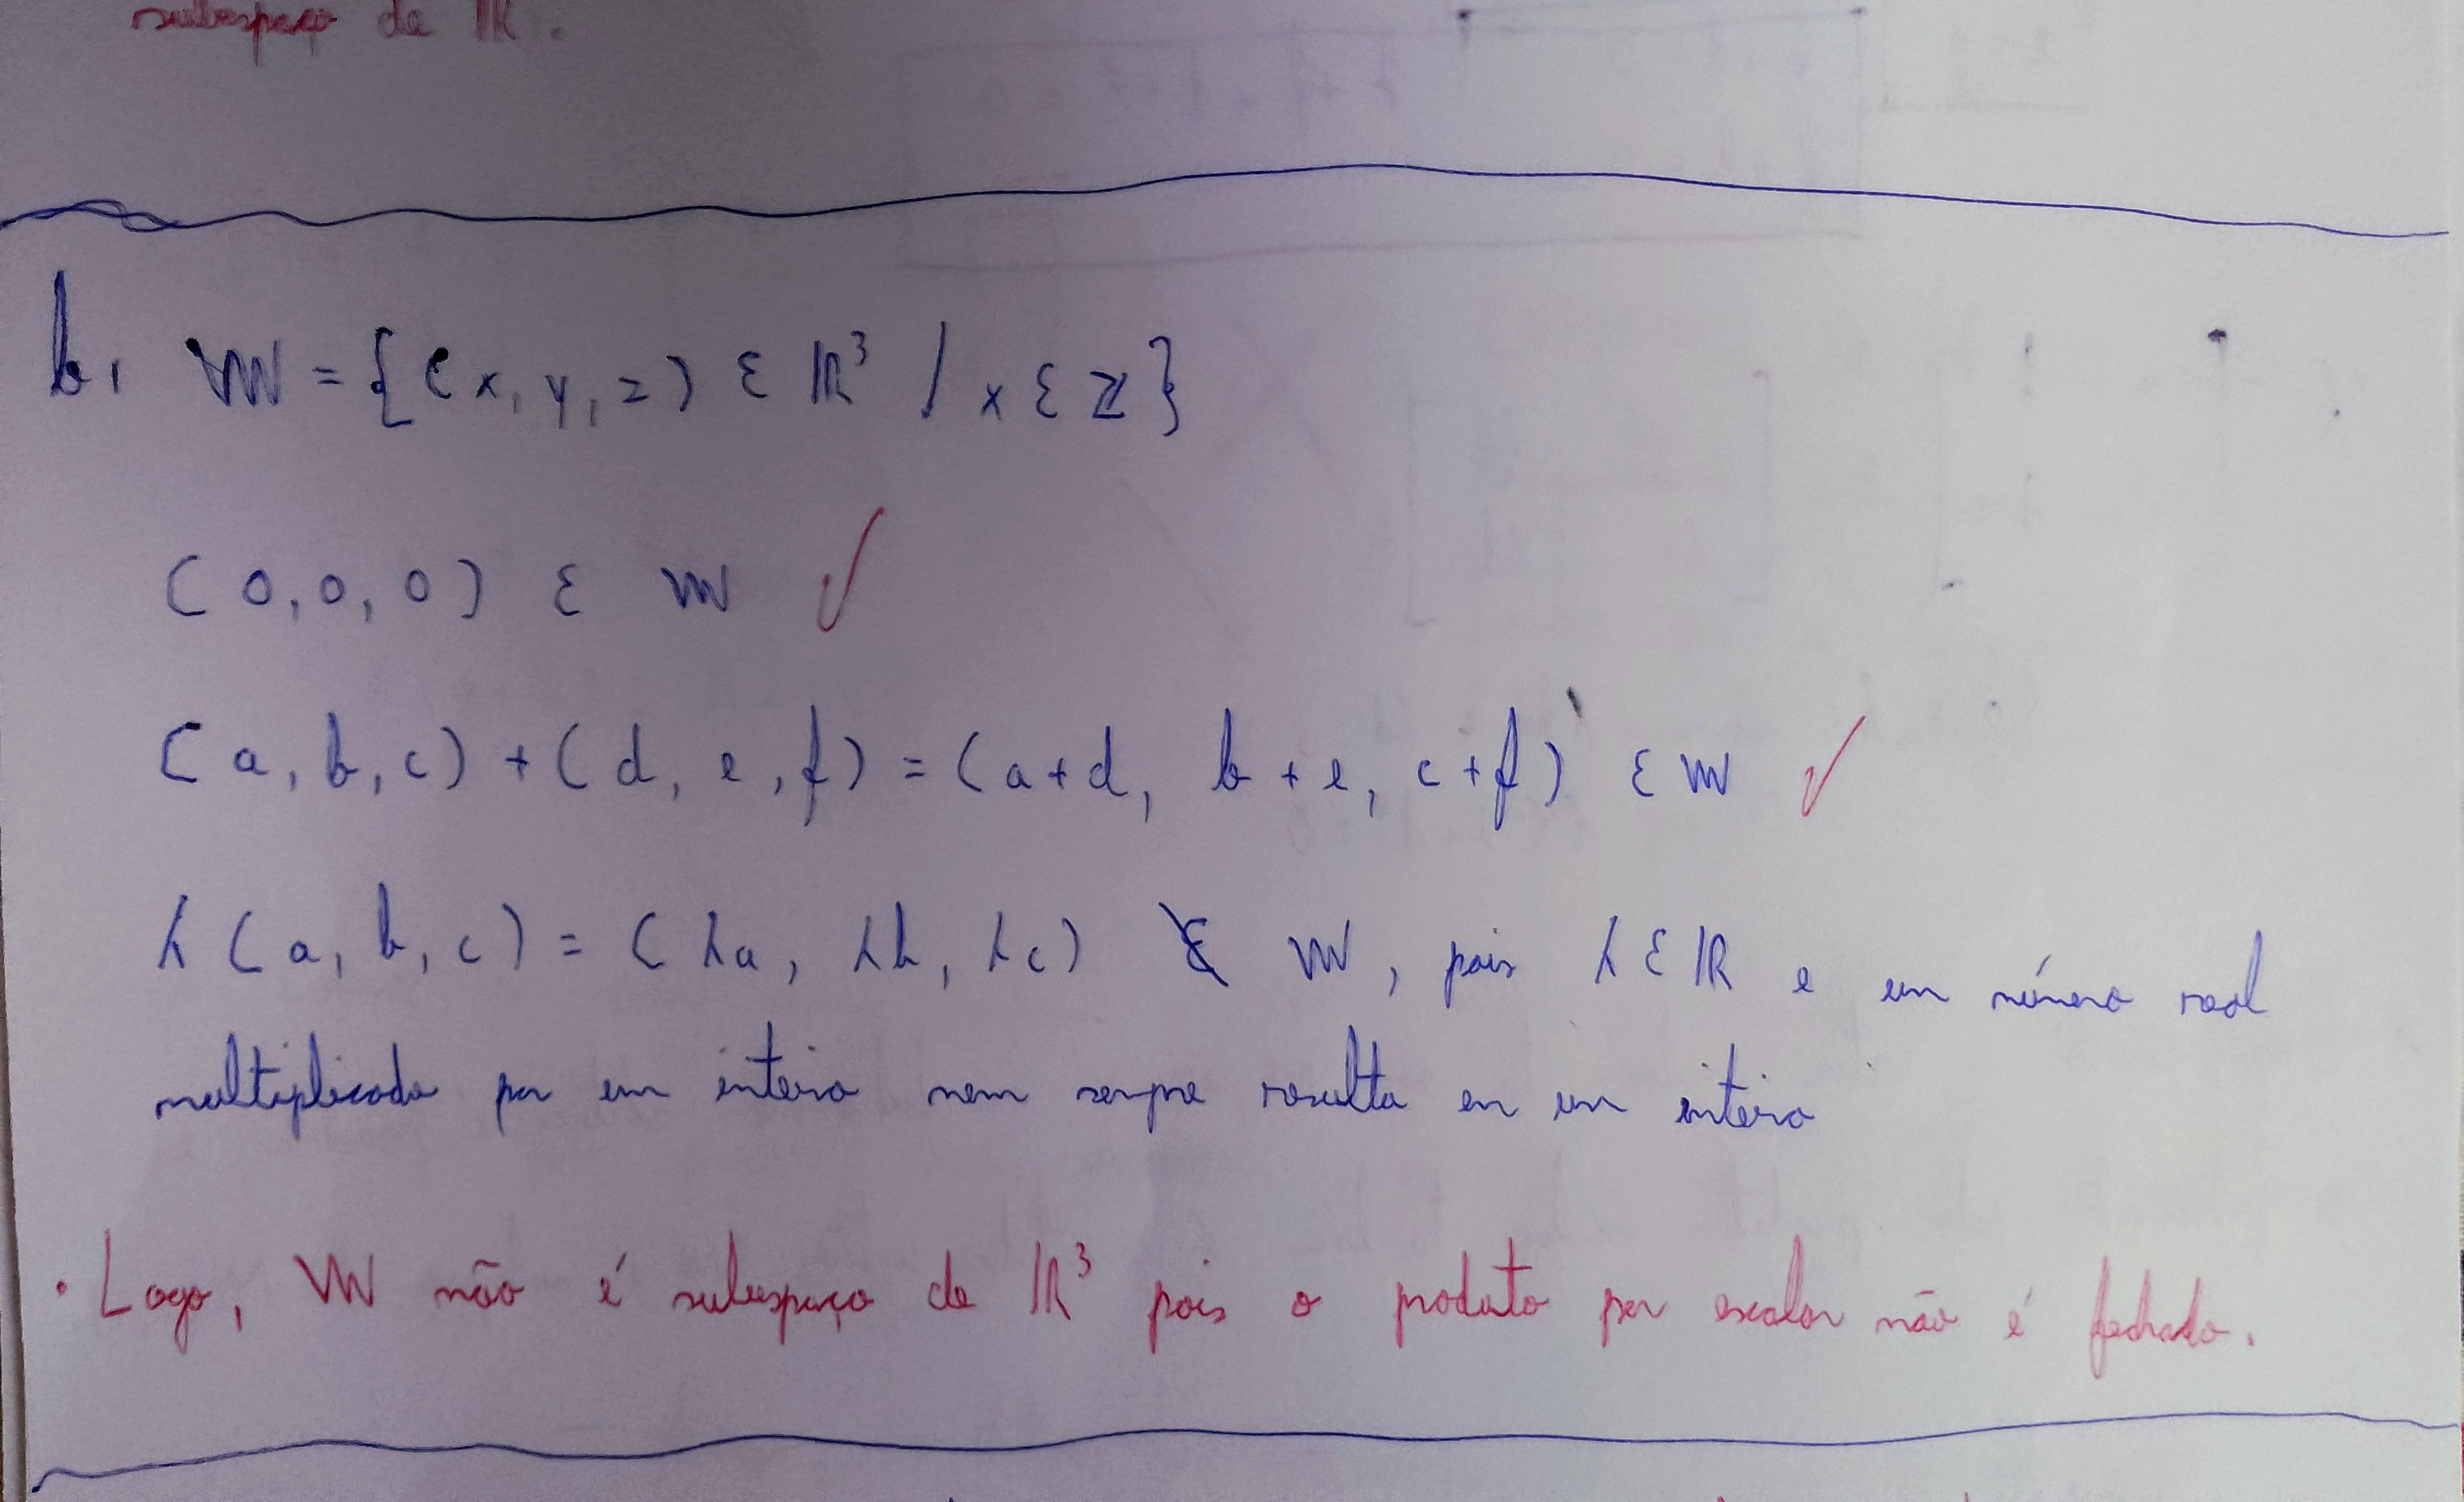 subespaço de IR.
b, W = {(x, y, z) ∈ IR³ / x ∈ Z}
(0, 0, 0) ∈ W ✓
(a, b, c) + (d, e, f) = (a+d, b+e, c+f) ∈ W ✓
λ(a, b, c) = (λa, λb, λc) ∉ W, pois λ ∈ IR e um número real
multiplicado por um inteiro nem sempre resulta em um inteiro
• Logo, W não é subespaço de IR³ pois o produto por escalar não é fechado.